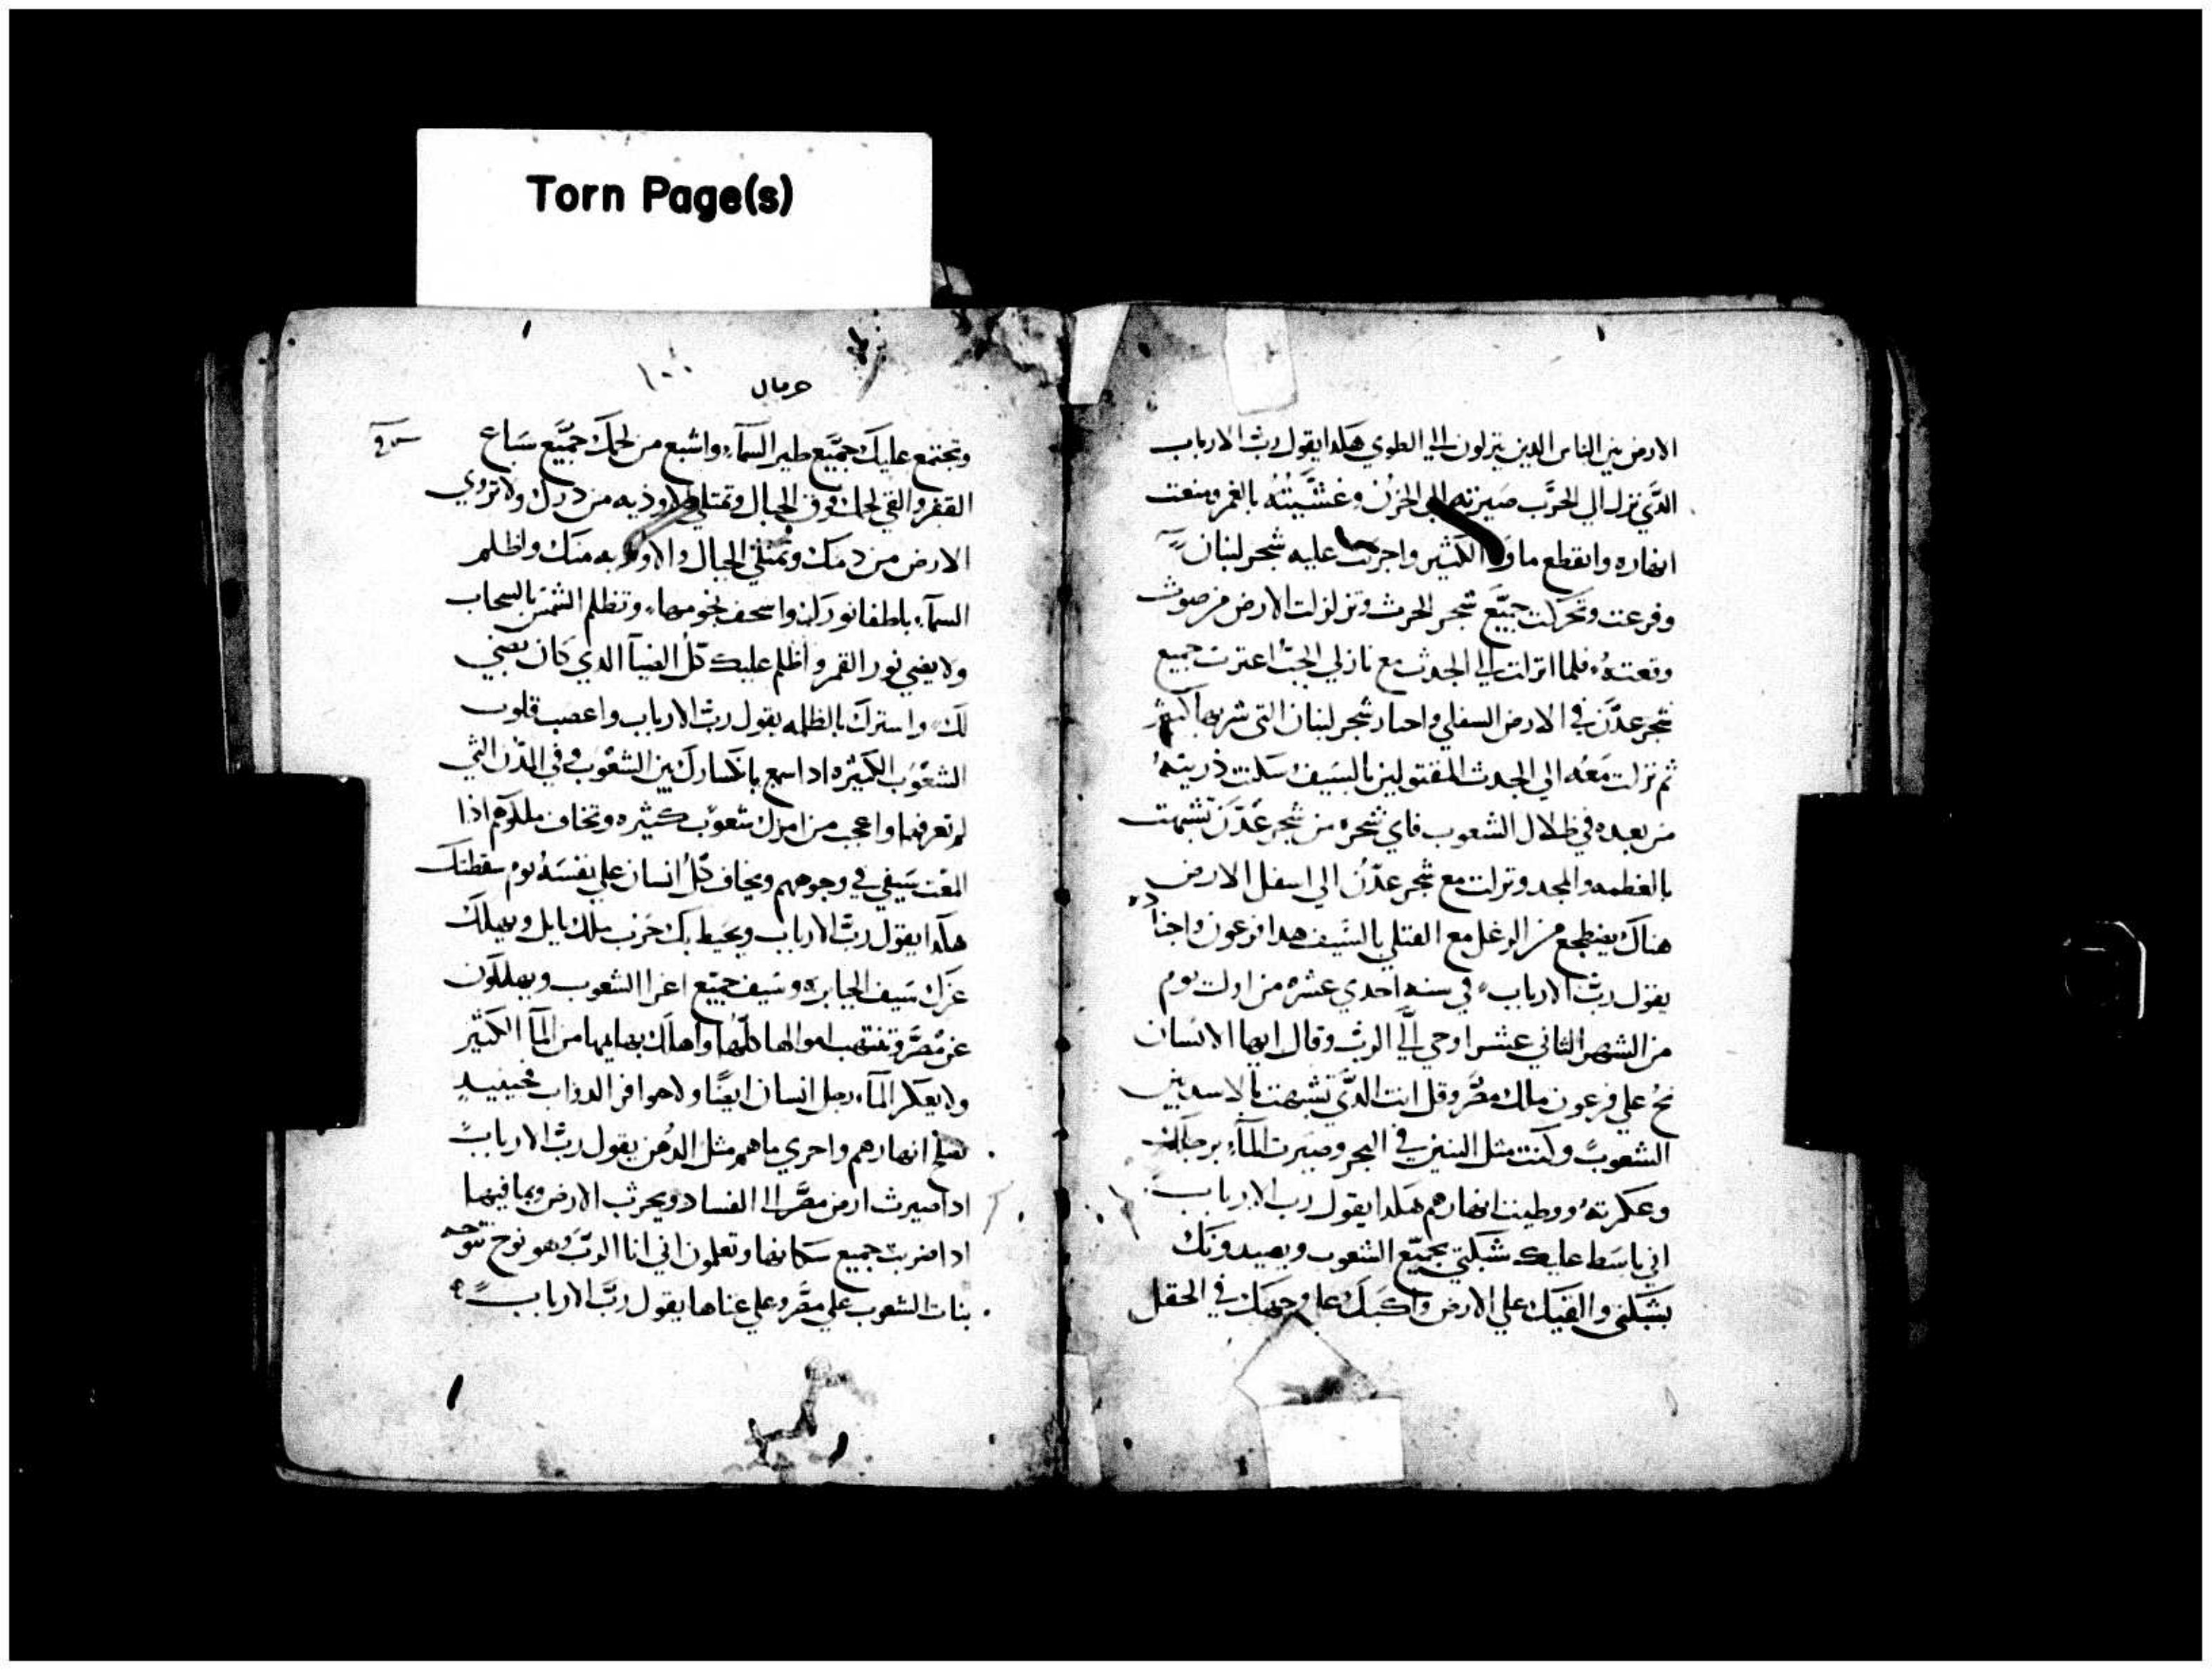 Torn Page(s)
الارض بين الناس الدين ينزلون الي الطوي هكدا يقول رب الارباب
الدي نزل الي الحرب صيرته الي الحزن وغشيته بالغمر ومنعت
انهاره وانقطع ماوه الكثير واجريت عليه شجر لبنان
وفرعت وتحركت جميع شجر الحرث وتزلزلت الارض من صوت
وقعته فلما انزلت الي الجدث مع نازلي الجب اعترت جميع
شجر عدن في الارض السفلي واحيار شجر لبنان التي شربها
ثم نزلت معه الي الجدث المقتولين بالسيف سكنت ذريته
من بعده في ظلال الشعوب فاي شجره من شجر عدن تشبهت
بالعظمه والمجد ونزلت مع شجر عدن الي اسفل الارض
هناك يضطجع مع القتلي بالسيف هدا فرعون واجناده
يقول رب الارباب في سنه احدي عشره من اول يوم
من الشهر الثاني عشر اوحي الَّي الرب وقال ايها الانسان
نح علي فرعون ملك مصر وقل انت الدي تشبهت بالاسد بين
الشعوب وكنت مثل التنين في البحر وصيرت المآء برجلك
وعكرته ووطيت انهارهم هكدا يقول رب الارباب
اني باسط عليك شبكتي بجميع الشعوب ويصيدونك
بشبكتي والقيك علي الارض واكبك علي وجهك في الحقل
حزقيال
وتجتمع عليك جميع طير السمآء واشبع من لحمك جميع سباع
القفر والقي لحمك فوق الجبال وتمتلي الاوديه من دمك ولا تروي
الارض من دمك وتمتلي الجبال والاوديه منك واظلم
السمآء باطفا نورك واسحف نجومها وتظلم الشمس بالسحاب
ولا يضي نور القمر واظلم عليك كل الضيآ الدي كان يضي
لك واسترك بالظلمه يقول رب الارباب واعصب قلوب
الشعوب الكثيره ادا سمع بانكسارك بين الشعوب وفي المدن التي
لم تعرفها واعجب من امرك شعوب كثيره وتخاف ملوكهم اذا
المعت سيفي في وجوههم ويخاف كل انسان علي نفسه يوم سقطتك
هكدا يقول رب الارباب ويحيط بك حرب ملك بابل ويهلك
عزك سيف الجبابره وسيف جميع اعزا الشعوب ويهلكون
عز مصر وتنتهب اموالها كلها واهلك بهايمها من المآ الكثير
ولا يعكر المآء رجل انسان ايضًا ولا حوافر الدواب فحينيد
انهارهم واجري ماهم مثل الدهن يقول رب الارباب
ادا صيرت ارض مصر الي الفساد ويخرب الارض وما فيها
ادا ضربت جميع سكانها وتعلمون اني انا الرب وهو نوح تنوحه
بنات الشعوب علي مصر وعلي غناها يقول رب الارباب